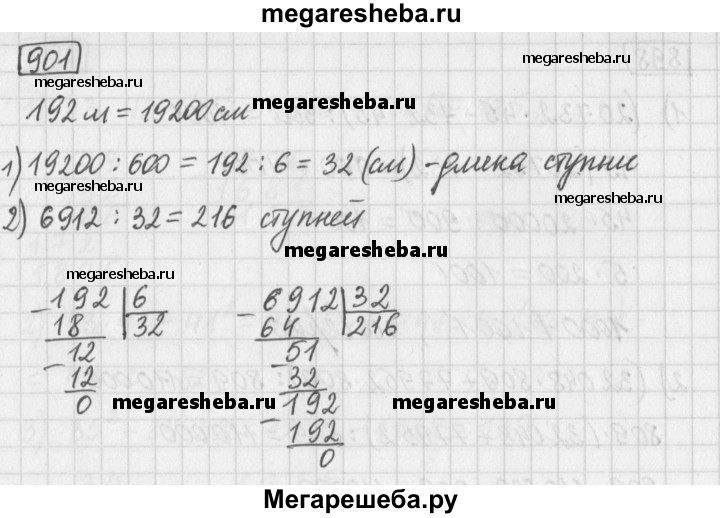 megaresheba.ru
901
megaresheba.ru
192 м = 19200 см megaresheba.ru
1) 19200 : 600 = 192 : 6 = 32 (см) - длина ступни
megaresheba.ru
2) 6912 : 32 = 216 ступней
megaresheba.ru
megaresheba.ru
- 192 | 6
18 | 32
- 12
12
0
- 6912 | 32
64 | 216
- 51
32
- 192
192
0
megaresheba.ru megaresheba.ru
Мегарешеба.ру